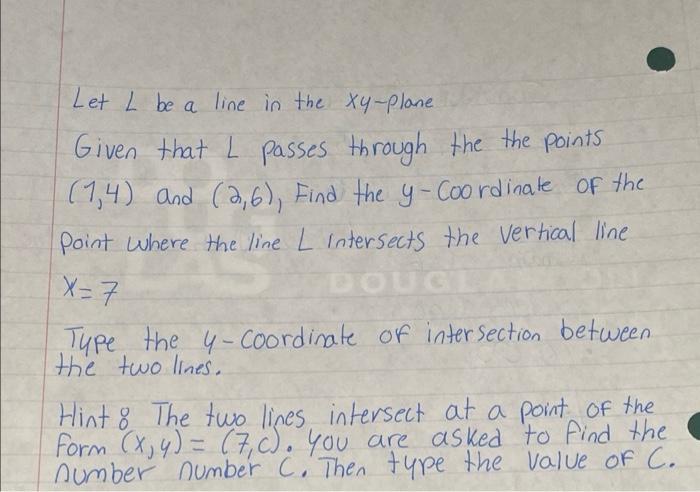 Let L be a line in the xy-plane
Given that L passes through the the points
(1,4) and (2,6), Find the y-Coordinate of the
point where the line L intersects the vertical line
X=7
Type the y-coordinate of intersection between
the two lines.
Hint: The two lines intersect at a point of the
form (x,y) = (7,c). You are asked to find the
number number C. Then type the value of C.
DOUGLA